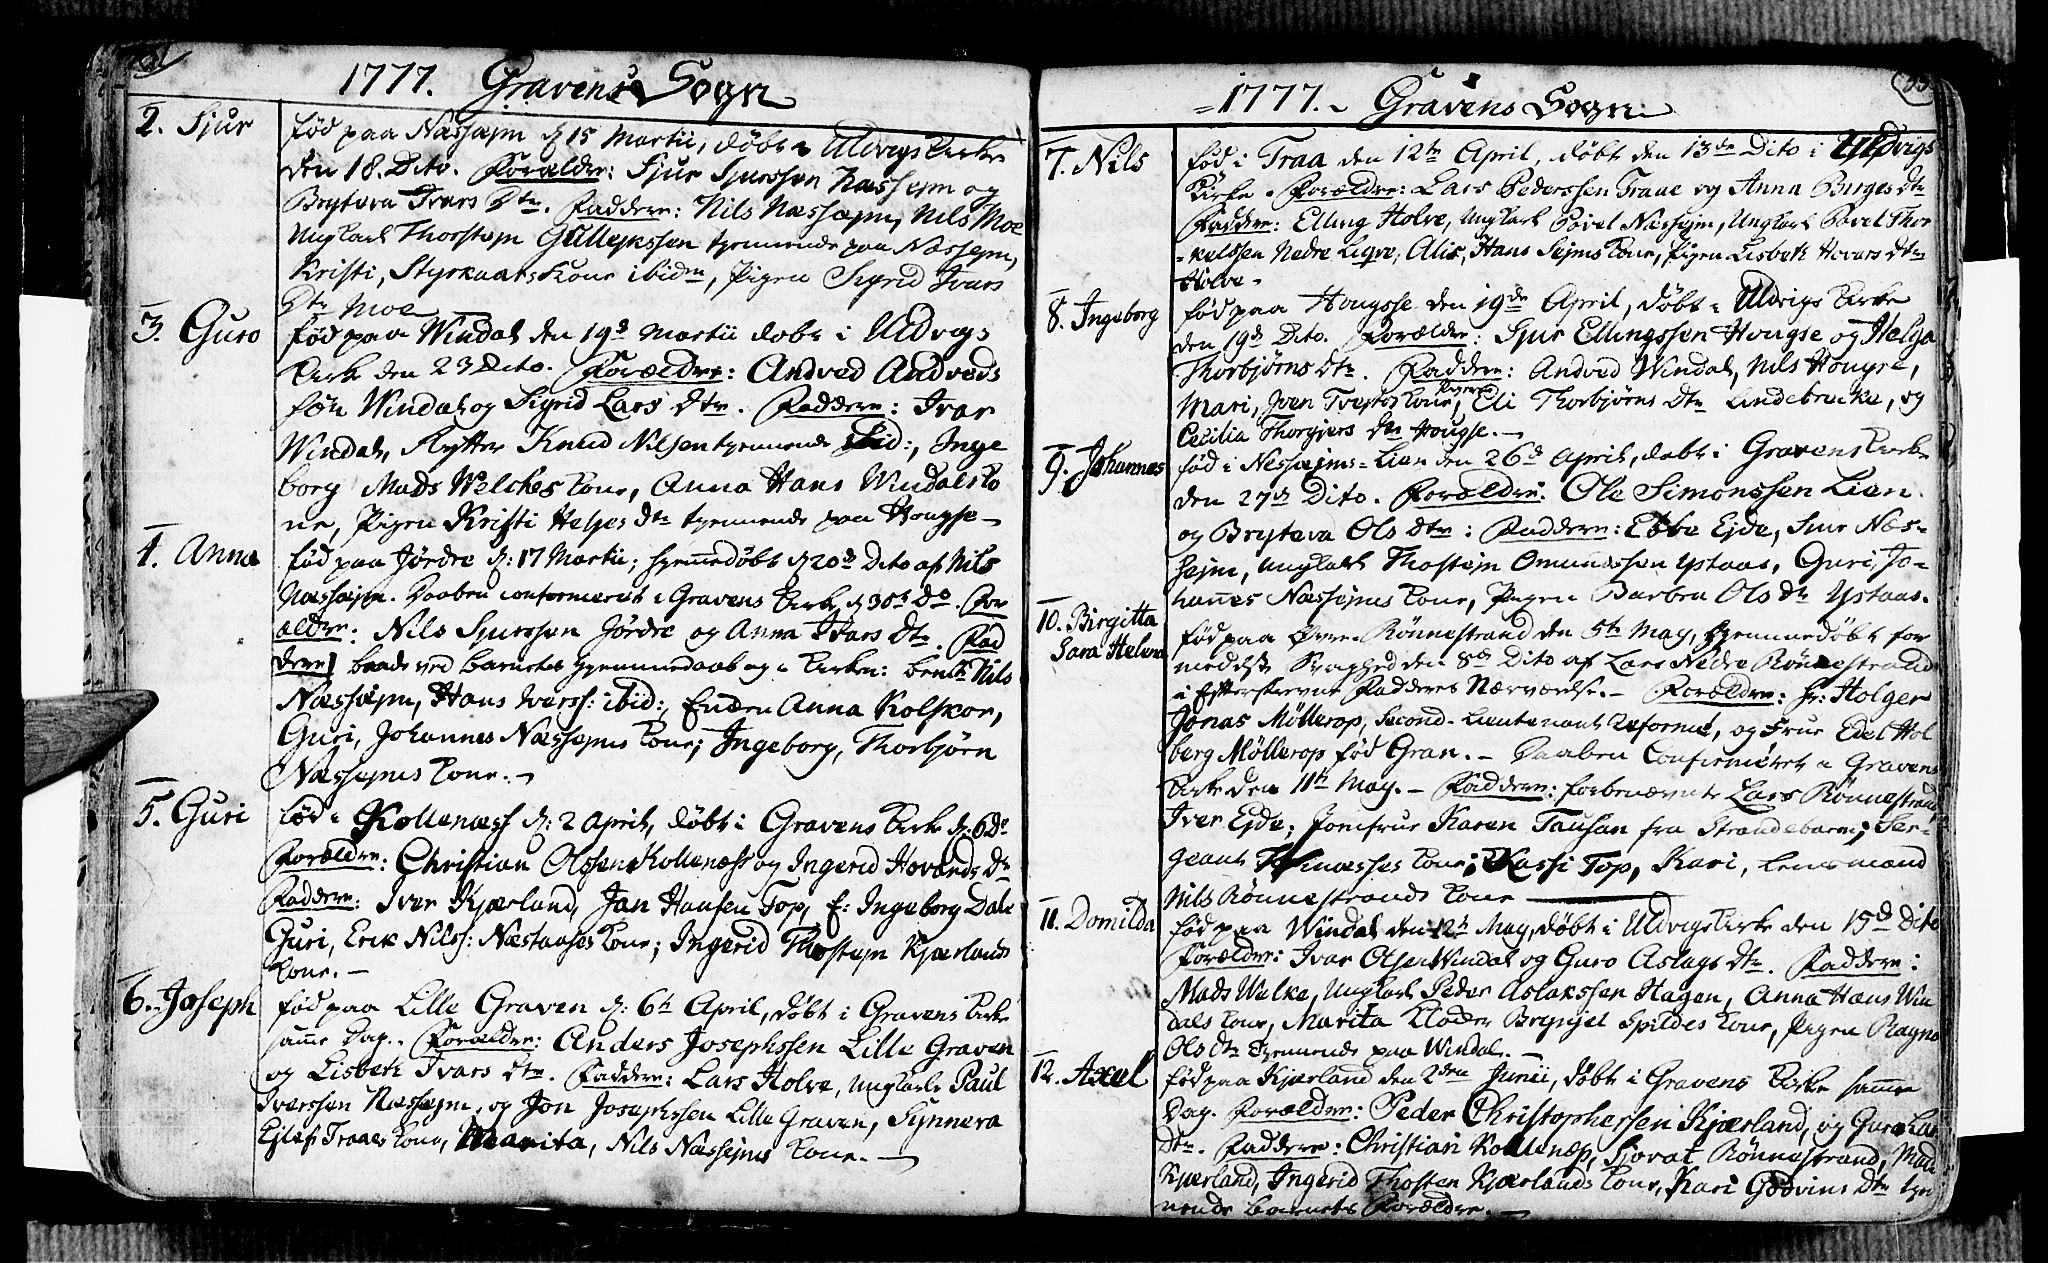 1777. Gravens Sogn
2. Sjur
fød paa Næshejm d. 15 Martii, døbt i Uldvigs Kirke
den 18. Dito. Forældre: Sjur Sjurssen Næshejm og
Brytava Ivars Dtr. Faddere: Nils Næshejm, Nils Moe
Ungkarl Thorstejn Gullejkssen tjennende paa Næshejm,
Kristi, Styrkaars Kone ibidm, Pigen Sigrid Ivars
Dtr Moe
3. Guro
fød paa Windal den 19d Martii døbt i Uldvigs
Kirke den 23 Dito. Forældre: Andved Andveds
søn Windal og Sigrid Lars Dtr. Faddere: Ivar
Windal, Rytter Knud Nilsen tjennende ibid:, Inge
borg Mads Welches Kone, Anna Hans Windals Ko
ne, Pigen Kristi Heljes Dtr tjennende paa Hougse
4. Anna
fød paa Jørdre d: 17 Martii, hjemmedøbt d 20d Dito af Nils
Næshejm. Daaben confirmeret i Gravens Kirke d 30t Do. For
ældre: Nils Sjurssen Jørdre og Anna Ivars Dtr. Fad
dere baade ved Barnets Hjemmedaab og i Kirken: bemte Nils
Næshejm, Hans Iverss: ibid:, Enden Anna Kolskor,
Guri, Johannes Næshejms Kone; Ingeborg, Thorbjørn
Næshejms Kone.
5. Guri
fød i Kollenæss d: 2 April, døbt i Gravens Kirke d: 6 Do
Forældre: Christian Olssen Kollenæss og Ingerid Hovards Dtr
Faddere: Iver Kjærland, Jan Hansen Top, E: Ingeborg Dale
Guri, Erik Nilss: Næstaases Kone; Ingerid Thostejn Kjærlands
Kone.
6. Joseph
fød paa Lille Graven d: 6th April, døbt i Gravens Kirke
samme Dag. Forældre: Anders Josephssen Lille Graven
og Lisbeth Ivars Dtr. Faddere: Lars Holve, Ungkarl Paul
Iverssen Næshejm, og Jon Josephssen Lille Graven, Synneva
Ejlef Traaes Kone, Marita, Nils Næshejms Kone.
1777. Gravens Sogn
7. Nils
fød i Traa den 12te April, døbt den 13de Dito i Uldvigs
Kirke. Forældre: Lars Pederssen Traae og Anna Birges Dtr
Faddere: Elling Holve, Ungkarl Povel Næshejm, Ungkarl Povel Thor
kelssen Nedre Leqve, Alis, Hans Sejms Kone, Pigen Lisbeth Hovars Dtr
Holve.
8. Ingeborg
fød paa Hougse den 19de April, døbt i Uldvigs Kirke
den 19d Dito. Forældre: Sjur Ellingssen Hougse og Helga
Thorbjørns Dtr. Faddere: Andved Windal, Nils Hougse,
Mari, Iven Tvejtos Kone, Pigerne Eli Thorbjørns Dtr Lindebrekke, og
Cecilia Thorgjers Dtr Hougse.
9. Johannes
fød i Neshejms-Lien den 26d April, døbt i Gravens Kirke
den 27d Dito. Forældre: Ole Simonssen Lien
og Brytava Ols Dtr: Faddere: Ebbe Ejde, Siur Næs-
hejm, Ungkarl Thostejn Omundssen Ystaas, Guri, Jo-
hannes Næshejms Kone, Pigen Barbra Ols Dtr Ystaas.
10. Birgitta
Sara Helena
fød paa Øvre Rønnestrand den 5te May, hjemmedøbt for
medelst Svaghed den 8d Dito af Lars Nedre Rønnestrand
i Efterskrevne Fadderes Nærværelse. Forældre: Hr: Holger
Jonas Möllerop, Second-Lieutenant Reformé, og Frue Edel Hol
berg Möllerop fød Gran. Daaben Confirmeret i Gravens
Kirke den 11te May. Faddere: forbenævnte Lars Rønnestrand
Iver Ejde; Jomfrue Karen Tausan fra Strandebarm; Ser-
geant Kone; Kassi Top, Kari, Lensmand
Nils Rønnestrands Kone
11. Domilda
fød paa Windal den 12t May, døbt i Uldvigs Kirke den 15d Dito
Forældre: Ivar Olsen Windal og Guro Aslags Dtr. Faddere:
Mads Welke, Ungkarl Peder Aslakssen Hagen, Anna Hans Win
dals Kone, Marita Brynjel Spildes Kone, Pigen Ragna
Ols Dtr tjennende paa Windal.
12. Axel
fød paa Kjærland den 2den Junii, døbt i Gravens Kirke samme
Dag. Forældre: Peder Christophersen Kjærland, og Guro Lars
Dtr. Faddere: Christian Kollenæs, Sjovat Rønnestrand, Mads
Kjærland, Ingerid Thosten Kjærlands Kone, Kari Godvins Dtr tjen
nende Barnets Forældre.